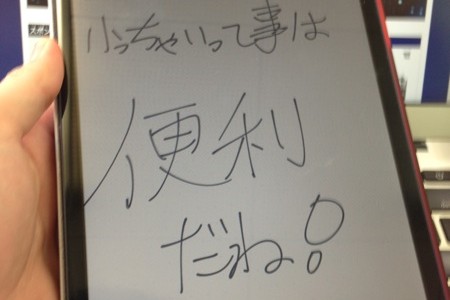 小っちゃいって事は
便利
だね!